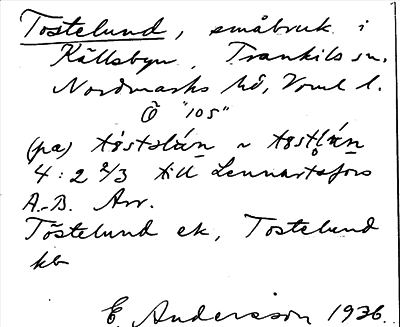 Tostelund, småbruk i
Källsbyn, Trankils sn.
Nordmarks hd, Vrml l.
Ö "105"
(pa) tøstəlán ~ tøstlán
4:2 2/3 till Lennartsfors
A.-B. Arr.
Töstelund ek, Tostelund
kb
E. Andersson 1936.